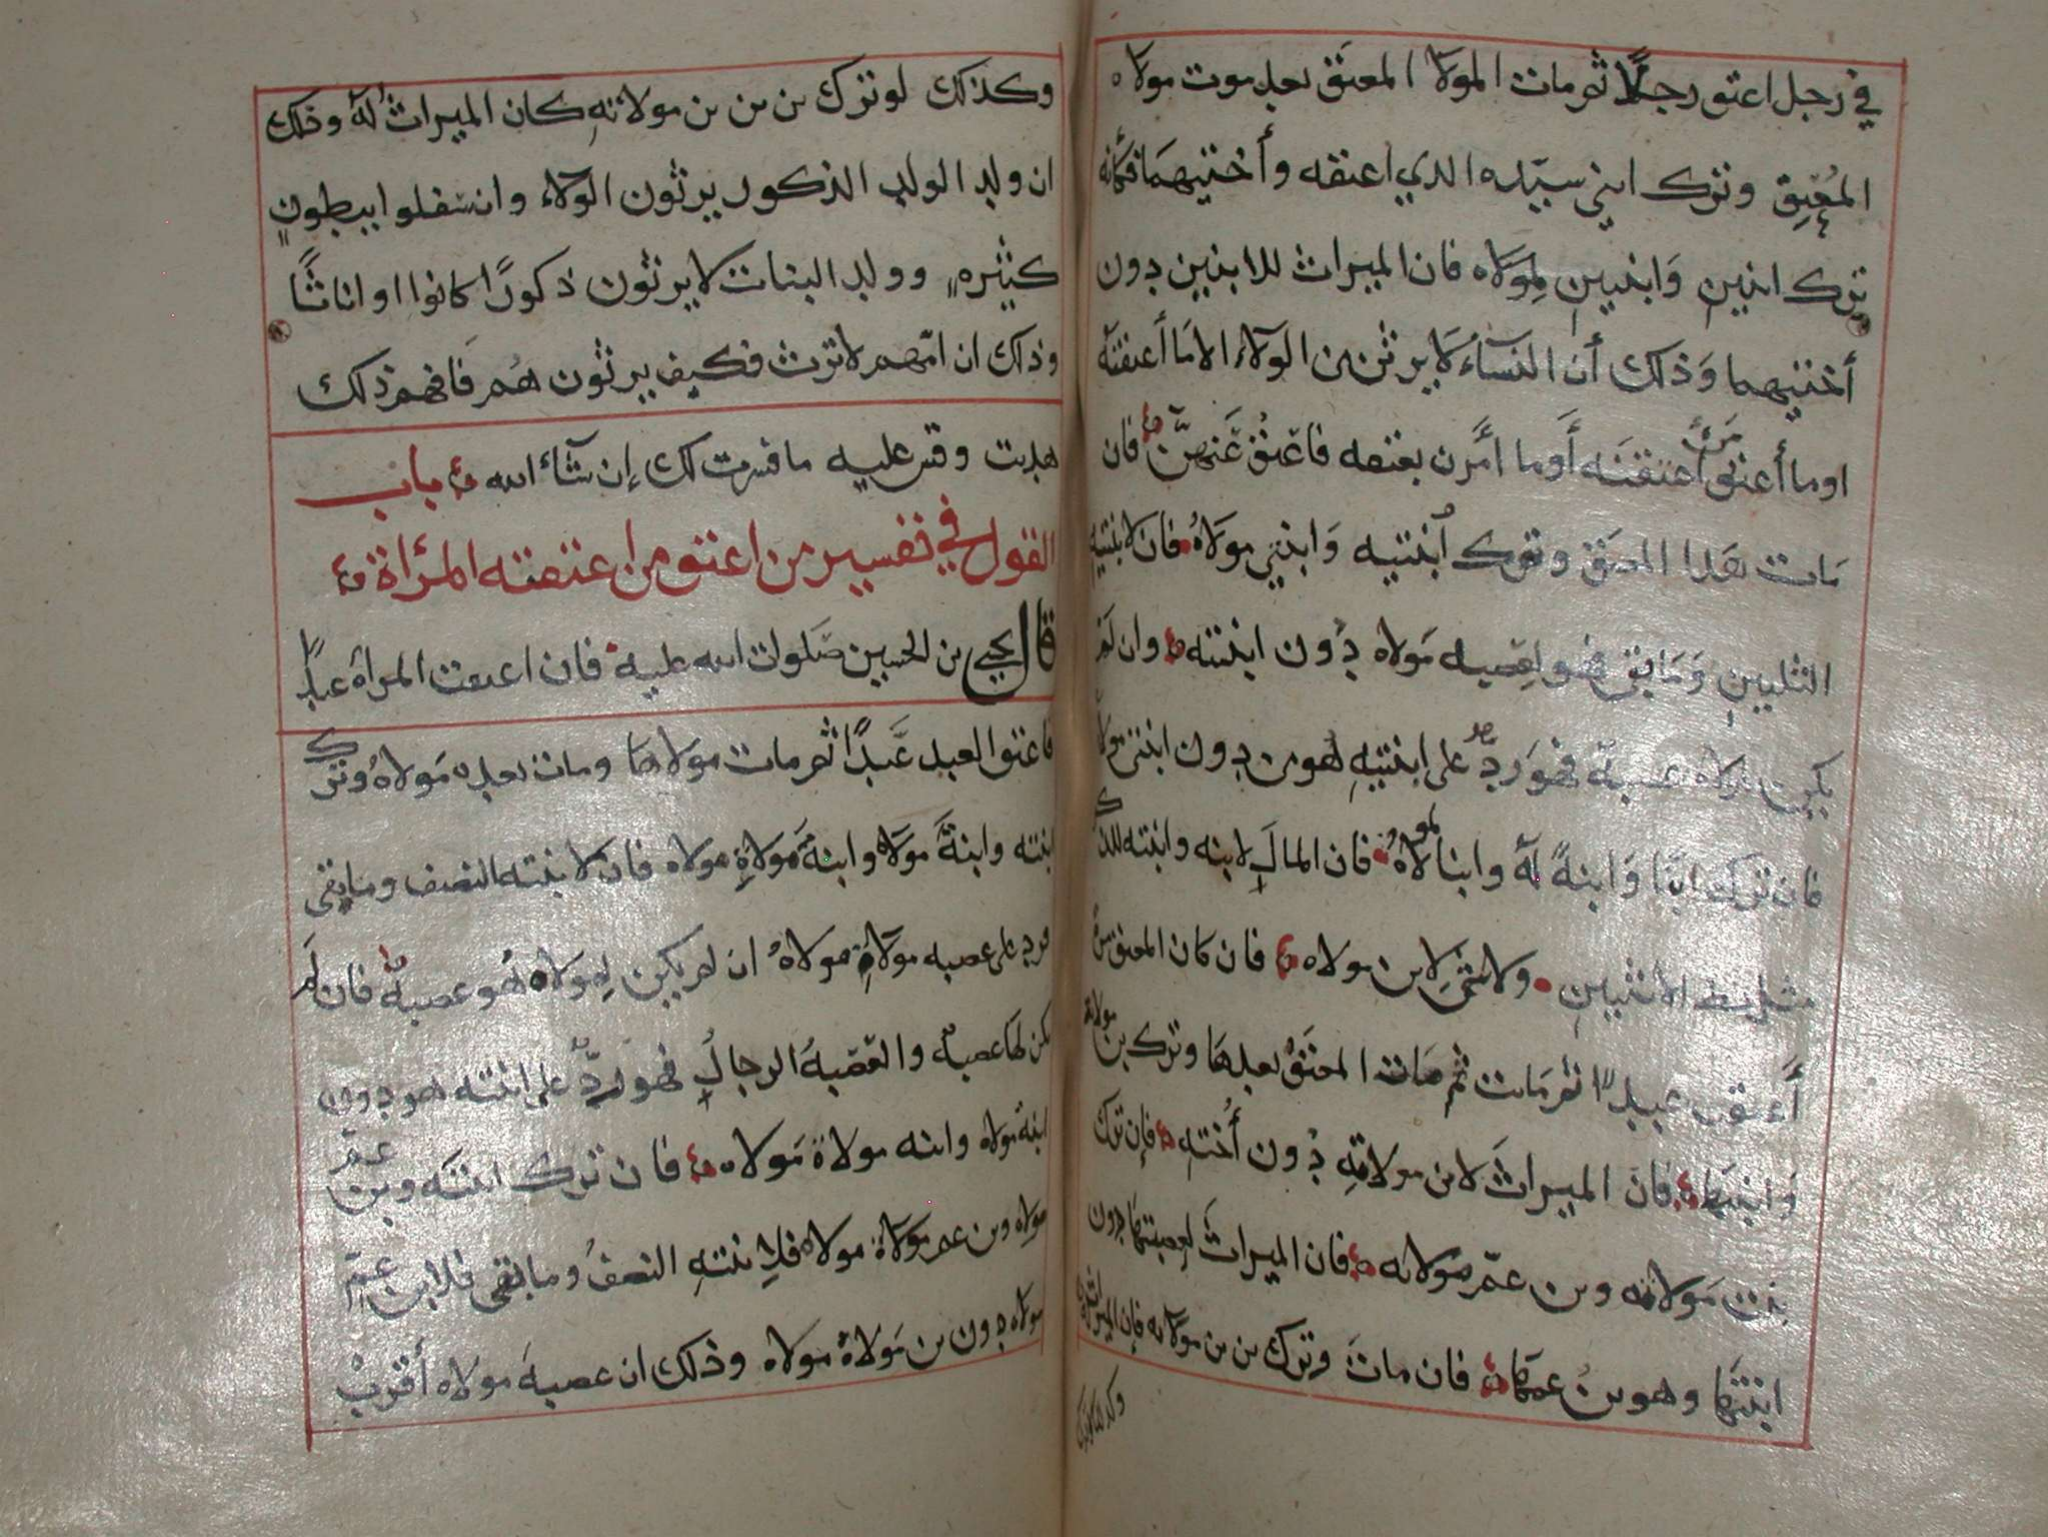 في رجل اعتق رجلًا ثم مات المولا المعتق بعد موت مولاه
المُعتِق وترك ابني سيّده الذي اعتقه وأختيهما فكأنه
ترك ابنين وَابنتين لِمولاه فان الميراث للابنين دون
أختيهما وَذلك أن النسآء لَا يرثن من الولآء الا مَا أعتقنه
اوما أعتق مَن أعتقنَه أوما أمَرن بعتقه فاعتق عَنهنّ فان
مَات هَذا المعتق وترك اُبنتيه وَابني مولاهُ فان لابنتيه
الثلثين وَمَا بقي فهو لعصبه مَولاه دُون ابنته وان لم
يكن لمولاه عصبة فهوَ ردّ على ابنتيهِ لهو من دون ابنتي مولاه
فان ترك ابنًا وَابنةً له وابنا لمولاهُ فان المالَ لابنه وابنته للذكر
مثل حظ الانثيين ولا شيَ لابن مولاه فان كان المعتق مرأة
أعتقت عبدًا ثم مَاتت ثم مَات المعتَق بعدهَا وترك بن مولاته
وَابنتهَا فان الميراثَ لابن مولاتهِ دُون أُخته فإن ترك
بنت مَولاته وبن عمّ مَولاته فان الميراثَ لعصبتهَا دون
ابنتهَا وهو بنُ عمهَا فان ماتَ وترك بن بن مولاته فان الميراث له
وكذلك لو ترك
وكذلك لو ترك بن بن بن مولاتهِ كان الميراثُ له وذلك
ان ولد الولد الذكور يرثون الولآء وان سفلوا ببطون
كثيره وولد البنات لا يرثون ذكورًا كانوا او اناثًا
وذلك ان امّهم لا ترث فكيف يرثون هُم فَافهم ذلك
هديت وقس عليه ما فسرت لك إن شآء الله باب
القول في تفسير من اعتق من اعتقته المرأة
قال يحيى بن الحسين صَلوات الله عليه فان اعتقت المرأة عبدًا
فاعتق العبد عَبدًا ثم مات مولاهَا ومات بعده مَولاهُ وترك
ابنته وابنةَ مولاه وابنةَ مَولاةِ مولاه فان لابنته النصف وما بقي
فرد على عصبه مولاةِ مولاهُ ان لم يكن لِمولاه هُو عصبة فان لَم
يكن لهَا عصبه والعَصبهُ الرجالُ فهو ردّ على ابنته هو دون
ابنة مولاه وابنه مولاة مَولاه فان ترك ابنتَه وبن عم
مولاه وبن عم مَولاة مولاه فلابنتهِ النصفُ وما بقي فلابن عمّ
مولاه دون بن مَولاةُ مولاه وذلك ان عصبةَ مولاه أقربُ